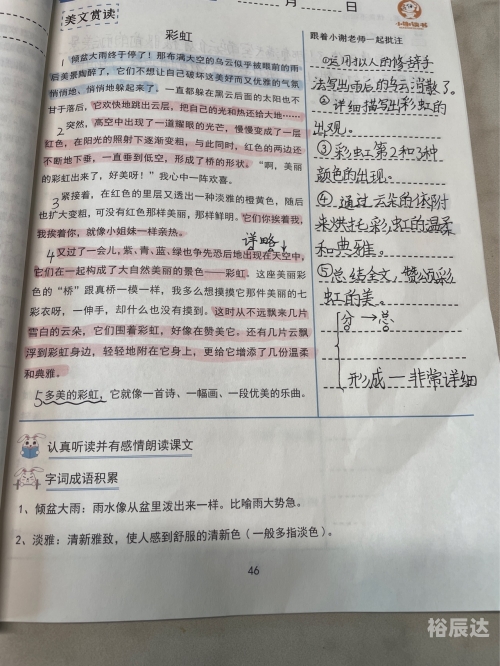 月 日
小咖读书
美文赏读
彩虹
1倾盆大雨终于停了!那布满大空的乌云似乎被眼前的雨
后美景陶醉了,它们不想让自己破坏这美好而又优雅的气氛
悄悄地、悄悄地躲起来了。一直都躲在黑云后面的太阳也不
甘于落后,它欢快地跳出云层,把自己的光和热还给大地……
2突然,高空中出现了一道耀眼的光芒,慢慢变成了一层
红色,在阳光的照射下逐渐变粗,与此同时,红色的两边还
不断地下垂,一直垂到低空,形成了桥的形状。“啊,美丽
的彩虹出来了,好美呀!”我心中一阵欢喜。
3紧接着,在红色的里层又透出一种淡雅的橙黄色,随后
也扩大变粗,可没有红色那样美丽,那样鲜明。它们你挨着我,
我挨着你,就像小姐妹一样亲热。
详略
4又过了一会儿,紫、青、蓝、绿也争先恐后地出现在天空中,
它们在一起构成了大自然美丽的景色——彩虹。这座美丽彩
色的“桥”跟真桥一模一样,我多么想摸摸它那件美丽的七
彩衣呀,一伸手,却什么也没有摸到。这时从不远飘来几片
雪白的云朵,它们围着彩虹,好像在赞美它。还有几片云飘
浮到彩虹身边,轻轻地附在它身上,更给它增添了几份温柔
和典雅。
5多美的彩虹,它就像一首诗、一幅画、一段优美的乐曲。
跟着小谢老师一起批注
①运用拟人的修辞手
法写出雨后的乌云消散了。
②详细描写出彩虹的
出观。
③彩虹第2和3种
颜色的出现。
④通过云朵的依附
来烘托彩虹的温柔
和典雅。
⑤总结全文,赞颂彩
虹的美。
分→总
形成一非常详细
认真听读并有感情朗读课文
字词成语积累
1、倾盆大雨:雨水像从盆里泼出来一样。比喻雨大势急。
2、淡雅:清新雅致,使人感到舒服的清新色(一般多指淡色)。
46
裕辰达